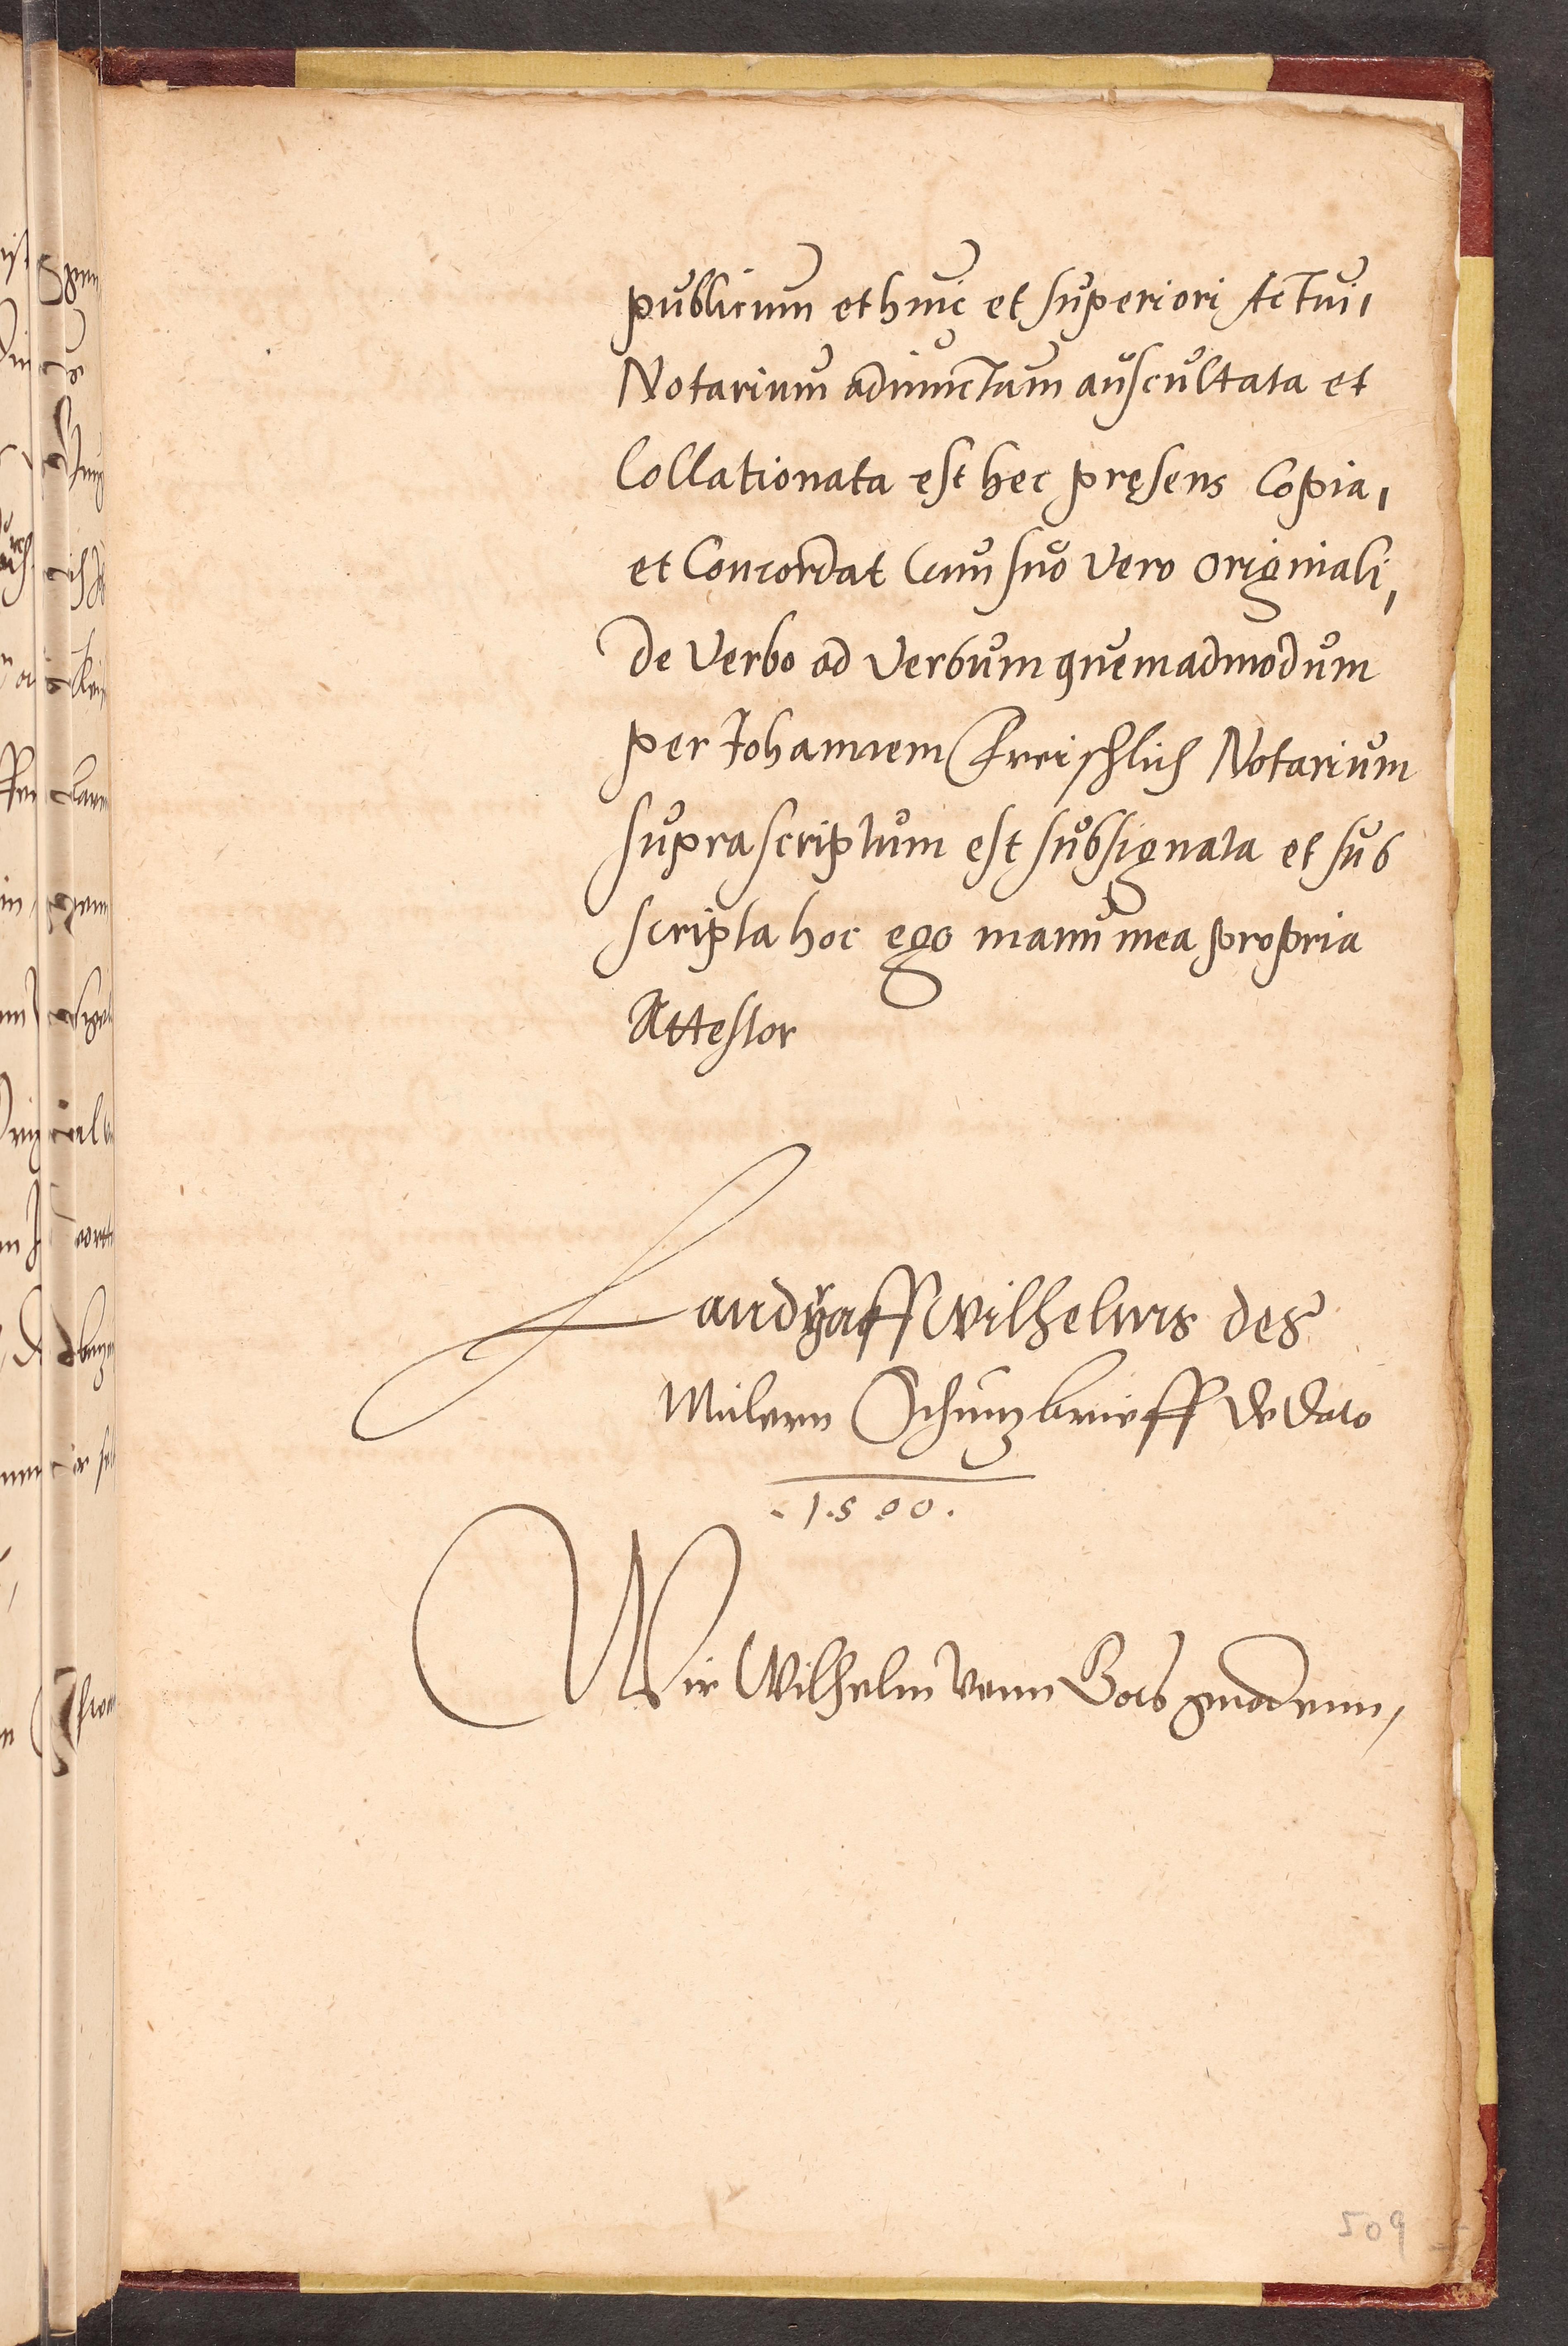 publicum et huic et superiori Actui,
Notarium adiunctum auscultata et
Collationata est hec pręsens Copia,
et Concordat Cum suo Vero originali,
de Verbo ad Verbum quemadmodum
per Johannem Freischlich Notarium
supra scriptum est subsignata et sub
scripta hoc ego manu mea propria
Attestor
Landgraff Wilhelms des
Mitlern Schutzbrieff de dato
.1.500.
Wir Wilhelm vonn Gots gnadenn,
509